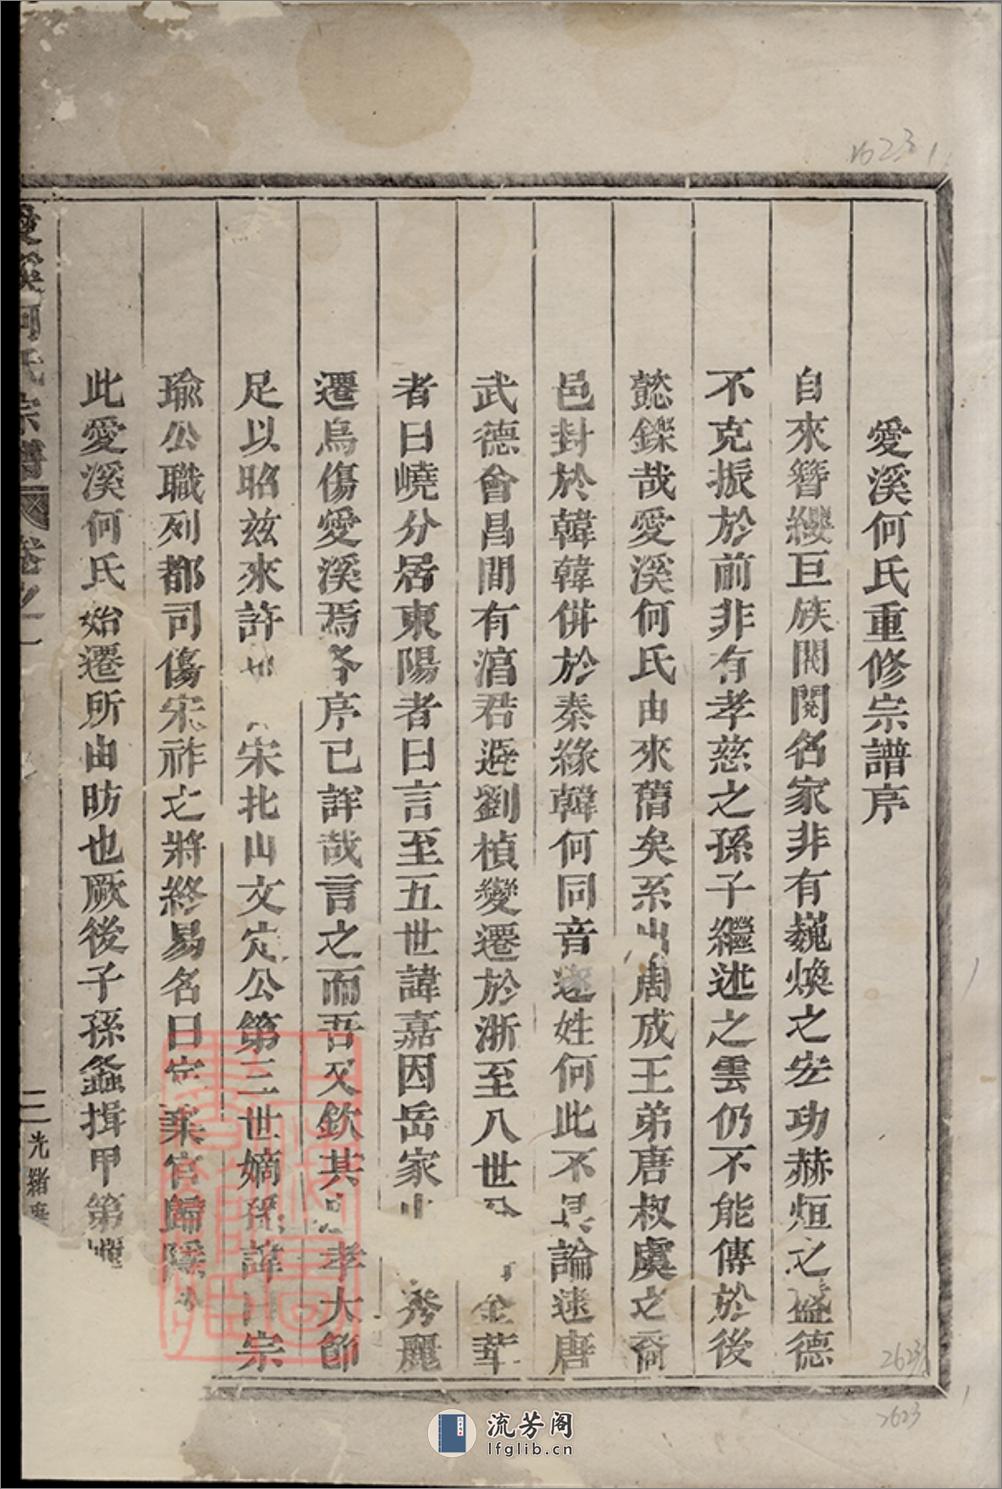 愛溪何氏重修宗譜序
自來簪纓巨族閥閱名家非有巍煥之宏功赫烜之盛德
不克振於前非有孝慈之孫子繼述之雲仍不能傳於後
懿鑠哉愛溪何氏由來舊矣系出周成王弟唐叔虞之裔
邑封於韓韓併於秦緣韓何同音遂姓何此不具論逮唐
武德會昌間有涫君避劉楨變遷於浙至八世 金華
者曰嶢分居東陽者曰言至五世諱嘉因岳家山 秀麗
遷烏傷愛溪焉各序已詳哉言之而吾又欽其 孝大節
足以昭茲來許 宋北山文定公第三世嫡孫諱 宗
瑜公職列都司傷宋祚之將終易名曰 棄官歸隱
此愛溪何氏始遷所由昉也厥後子孫螽揖甲第
愛溪何氏宗譜 卷之一
二 光緒
1623
2623
2623
流芳阁
lfglib.cn